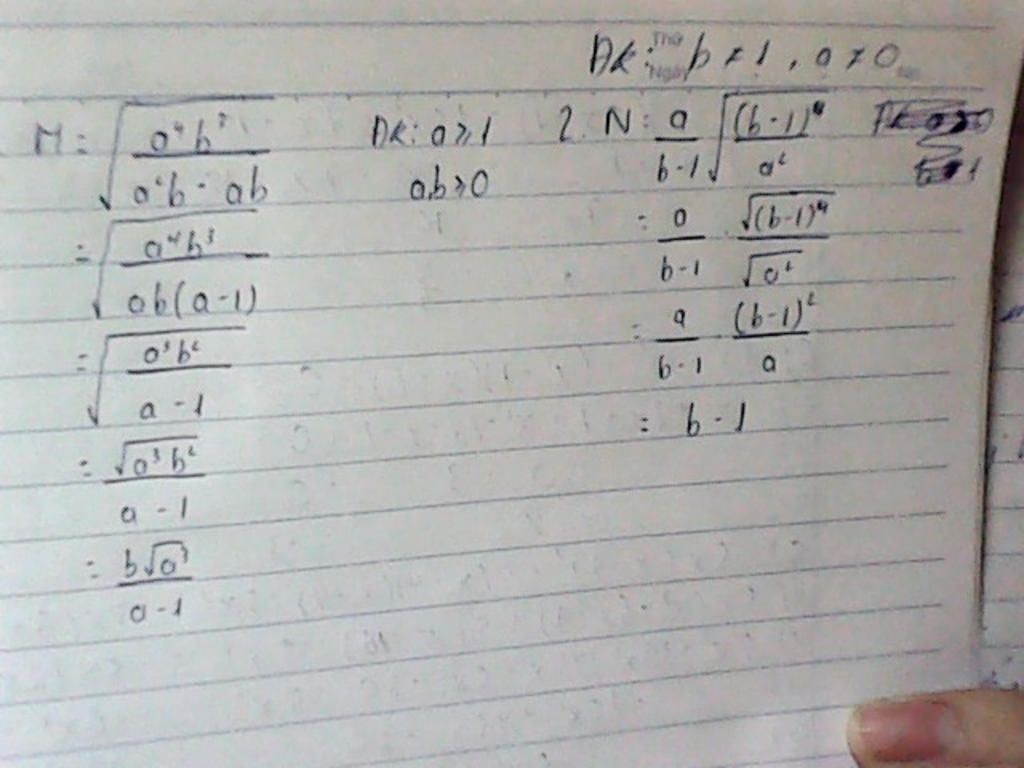 Thứ
Ngày
ĐK: b ≠ 1, a ≠ 0
M = √(a⁴b³ / (a²b - ab)) ĐK: a ⩾ 1
ab ⩾ 0
= √(a⁴b³ / (ab(a-1)))
= √(a³b² / (a - 1))
= √(a³b²) / (a - 1)
= b√(a³) / (a-1)
2. N = a/(b-1) √((b-1)⁴ / a²)
= a/(b-1) · √((b-1)⁴) / √(a²)
= a/(b-1) · (b-1)² / a
= b - 1